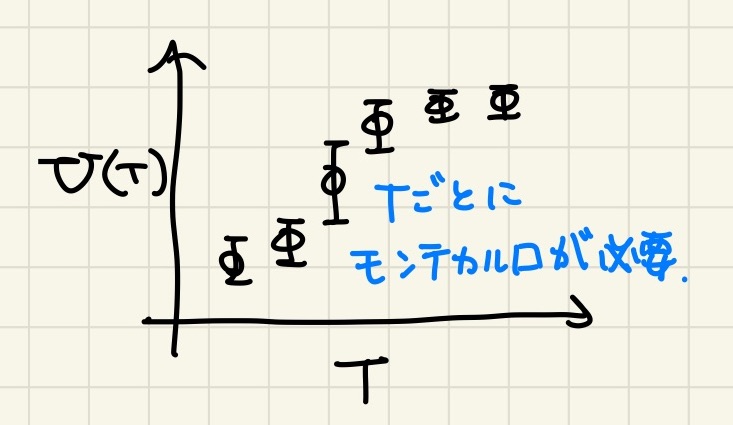 U(T)
Tごとに
モンテカルロが必要.
T